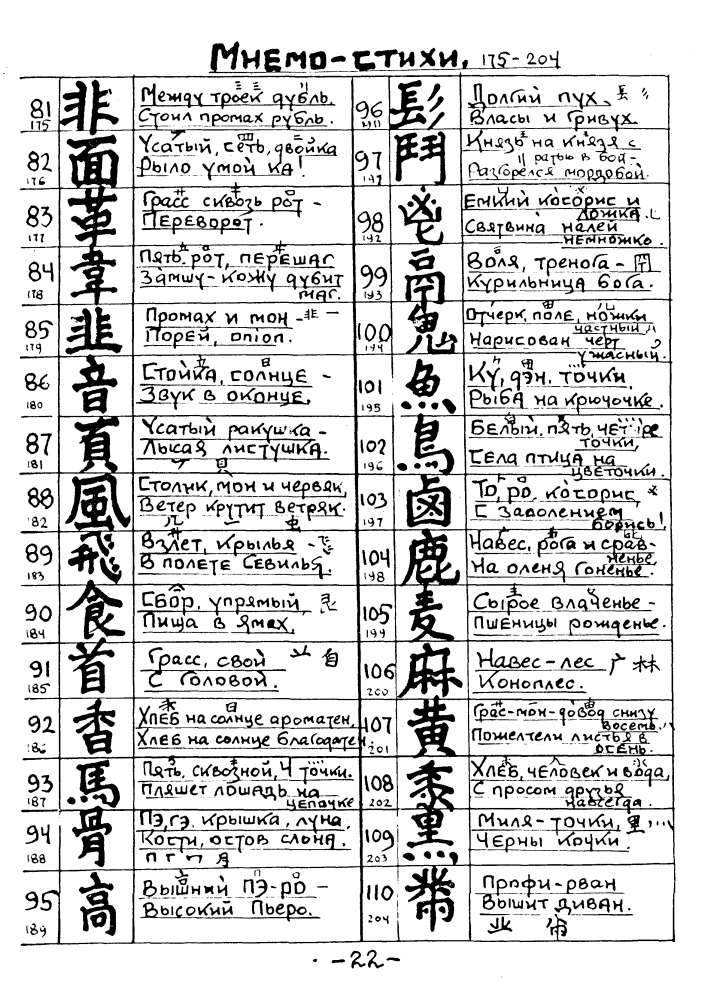 Мнемо-стихи. 175-204
81 175 非 Между троек дубль.
Стоил промах рубль.
82 176 面 Усатый, сеть, двойка
Рыло умой ка!
83 177 革 Грасс сквозь рот -
Переворот.
84 178 韋 Пять, рот, перешаг
Замшу-кожу дубит
маг.
85 179 韭 Промах и мон - 非 一
Порей, onion.
86 180 音 Стойка, солнце -
Звук в оконце.
87 181 頁 Усатый ракушка -
Лысая листушка.
88 182 風 Столик, мон и червяк,
Ветер крутит ветряк.
几 一 虫
89 183 飛 Взлет, крылья -
В полете Севилья.
90 184 食 Сбор, упрямый,
Пища в ямах.
91 185 首 Грасс, свой 自
С головой.
92 186 香 Хлеб на солнце ароматен,
Хлеб на солнце благодатен.
93 187 馬 Пять, сквозной, 4 точки.
Пляшет лошадь на
цепочке
94 188 骨 Пэ, гэ, крышка, луна,
Кости, остов слона.
95 189 高 Вышний Пэ-ро -
Высокий Пьеро.
96 髟 Долгий пух.
Власы и гривух.
97 鬥 Князь на князя с
ратью в бой -
Разгорелся мордобой.
98 192 鬯 Емкий косорис и
ложка.
Святвина налей
немножко.
99 193 鬲 Воля, тренога -
Курильница бога.
100 194 鬼 Отчерк, поле, ножки
частный
Нарисован черт
ужасный.
101 195 魚 Ку, дэн, точки,
Рыба на крючочке.
102 196 鳥 Белый, пять, четыре
точки,
Села птица на
цветочки.
103 197 鹵 То, ро, косорис,
С заволением
борись!
104 198 鹿 Навес, рога и срав-
ненье,
На оленя гоненье.
105 199 麦 Сырое влаченье -
Пшеницы рожденье.
106 200 麻 Навес-лес 广 林
Коноплес.
107 201 黄 Грас-мон-довод снизу
восемь.
Пожелтели листья в
осень.
108 202 黍 Хлеб, человек и вода,
С просом друзья
навсегда.
109 203 黒 Миля-точки, 里
Черны кочки.
110 204 黹 Профи-рван
Вышит диван.
-22-